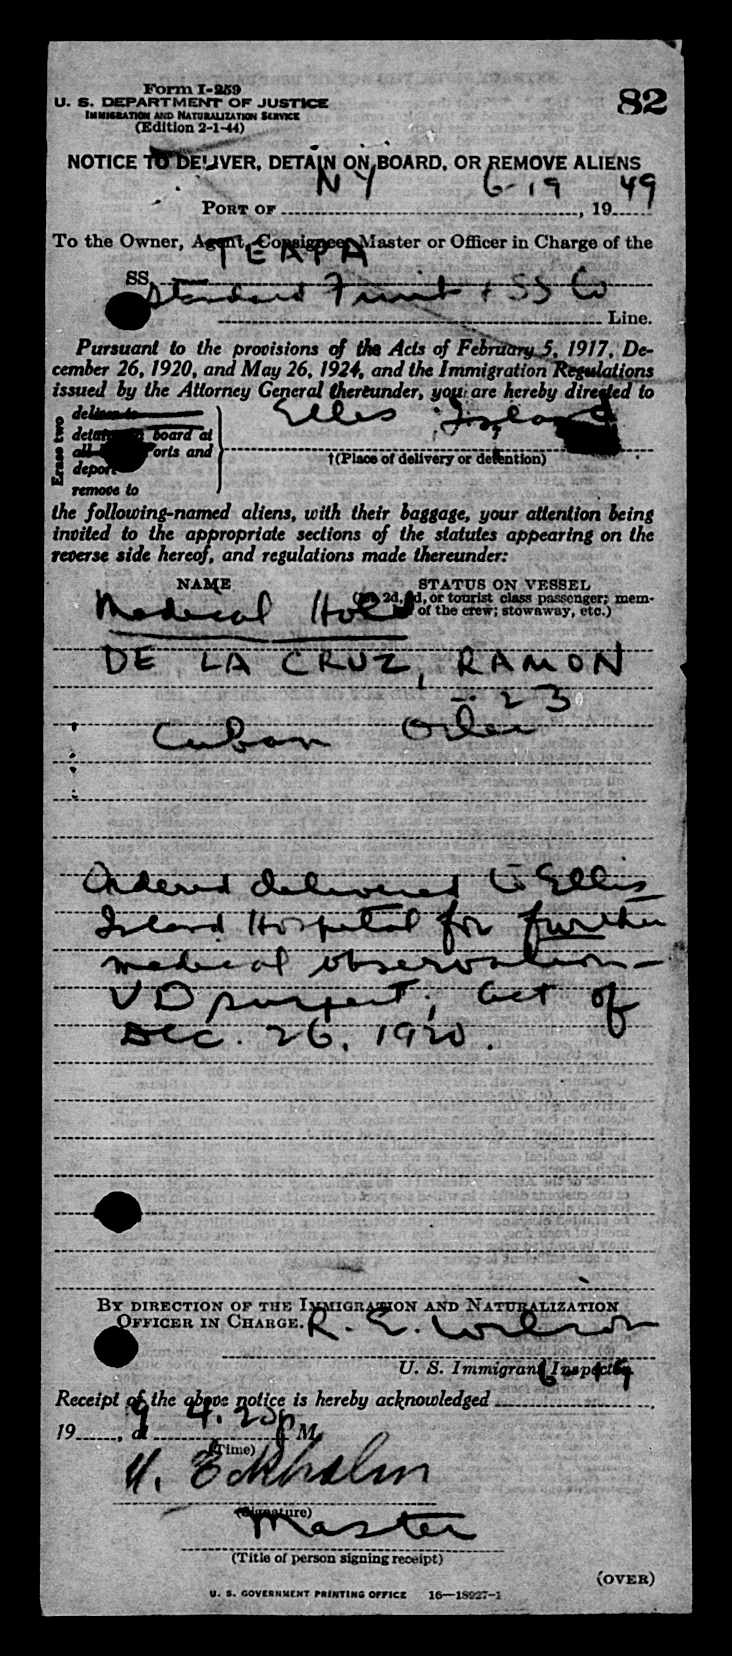 Form I-259
U. S. DEPARTMENT OF JUSTICE
IMMIGRATION AND NATURALIZATION SERVICE
(Edition 2-1-44)
82
NOTICE TO DELIVER, DETAIN ON BOARD, OR REMOVE ALIENS
PORT OF NY 6-19, 1949
To the Owner, Agent, Consignee, Master or Officer in Charge of the
TEAPA
SS
Standard Fruit + SS Co
Line.
Pursuant to the provisions of the Acts of February 5, 1917, De-
cember 26, 1920, and May 26, 1924, and the Immigration Regulations
issued by the Attorney General thereunder, you are hereby directed to
Erase two
deliver to
detain on board at
all ports and
deport
remove to
Ellis Island
†(Place of delivery or detention)
the following-named aliens, with their baggage, your attention being
invited to the appropriate sections of the statutes appearing on the
reverse side hereof, and regulations made thereunder:
NAME STATUS ON VESSEL
2d, 3d, or tourist class passenger; mem-
of the crew; stowaway, etc.)
Medical Hold
DE LA CRUZ, RAMON
23
Cuban Oiler
Ordered delivered to Ellis
Island Hospital for further
medical observation—
VD suspect; Act of
Dec. 26, 1920.
BY DIRECTION OF THE IMMIGRATION AND NATURALIZATION
OFFICER IN CHARGE. R. E. Wilson
U. S. Immigrant Inspector.
6-19
Receipt of the above notice is hereby acknowledged
19 9, at 4.20p M.
(Time)
H. Eckholm
(Signature)
Master
(Title of person signing receipt)
(OVER)
U. S. GOVERNMENT PRINTING OFFICE 16—18927-1